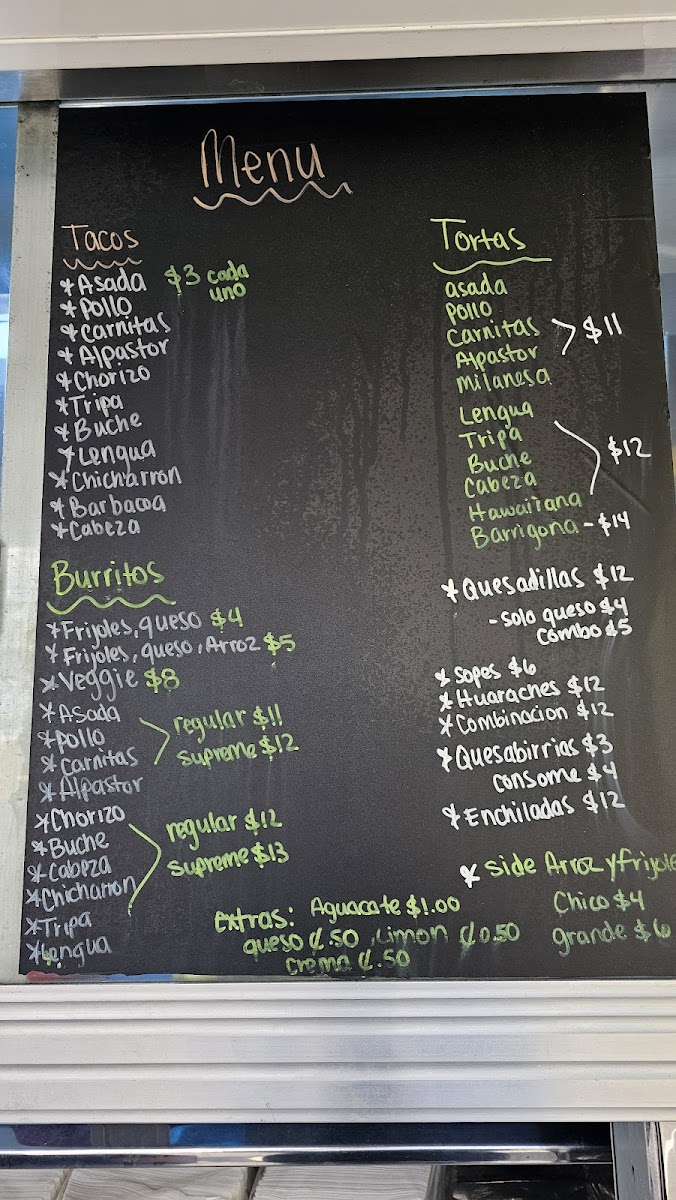 Menu
Tacos
* Asada $3 cada uno
* Pollo
* Carnitas
* Alpastor
* Chorizo
* Tripa
* Buche
* Lengua
* Chicharron
* Barbacoa
* Cabeza
Burritos
* Frijoles, queso $4
* Frijoles, queso, Arroz $5
* Veggie $8
* Asada
* Pollo
* Carnitas
* Alpastor
regular $11
supreme $12
* Chorizo
* Buche
* Cabeza
* Chicharron
* Tripa
* Lengua
regular $12
supreme $13
Tortas
asada
Pollo
Carnitas
Alpastor
milanesa
$11
Lengua
Tripa
Buche
Cabeza
Hawaiiana
$12
Barrigona - $14
* Quesadillas $12
- solo queso $4
combo $5
* Sopes $6
* Huaraches $12
* Combinacion $12
* Quesabirrias $3
consome $4
* Enchiladas $12
* side Arroz y frijole
Chico $4
grande $6
extras: Aguacate $1.00
queso ₡.50, Limon ₡0.50
crema ₡.50